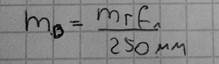 m_B = m_r f_1 / 250 мм